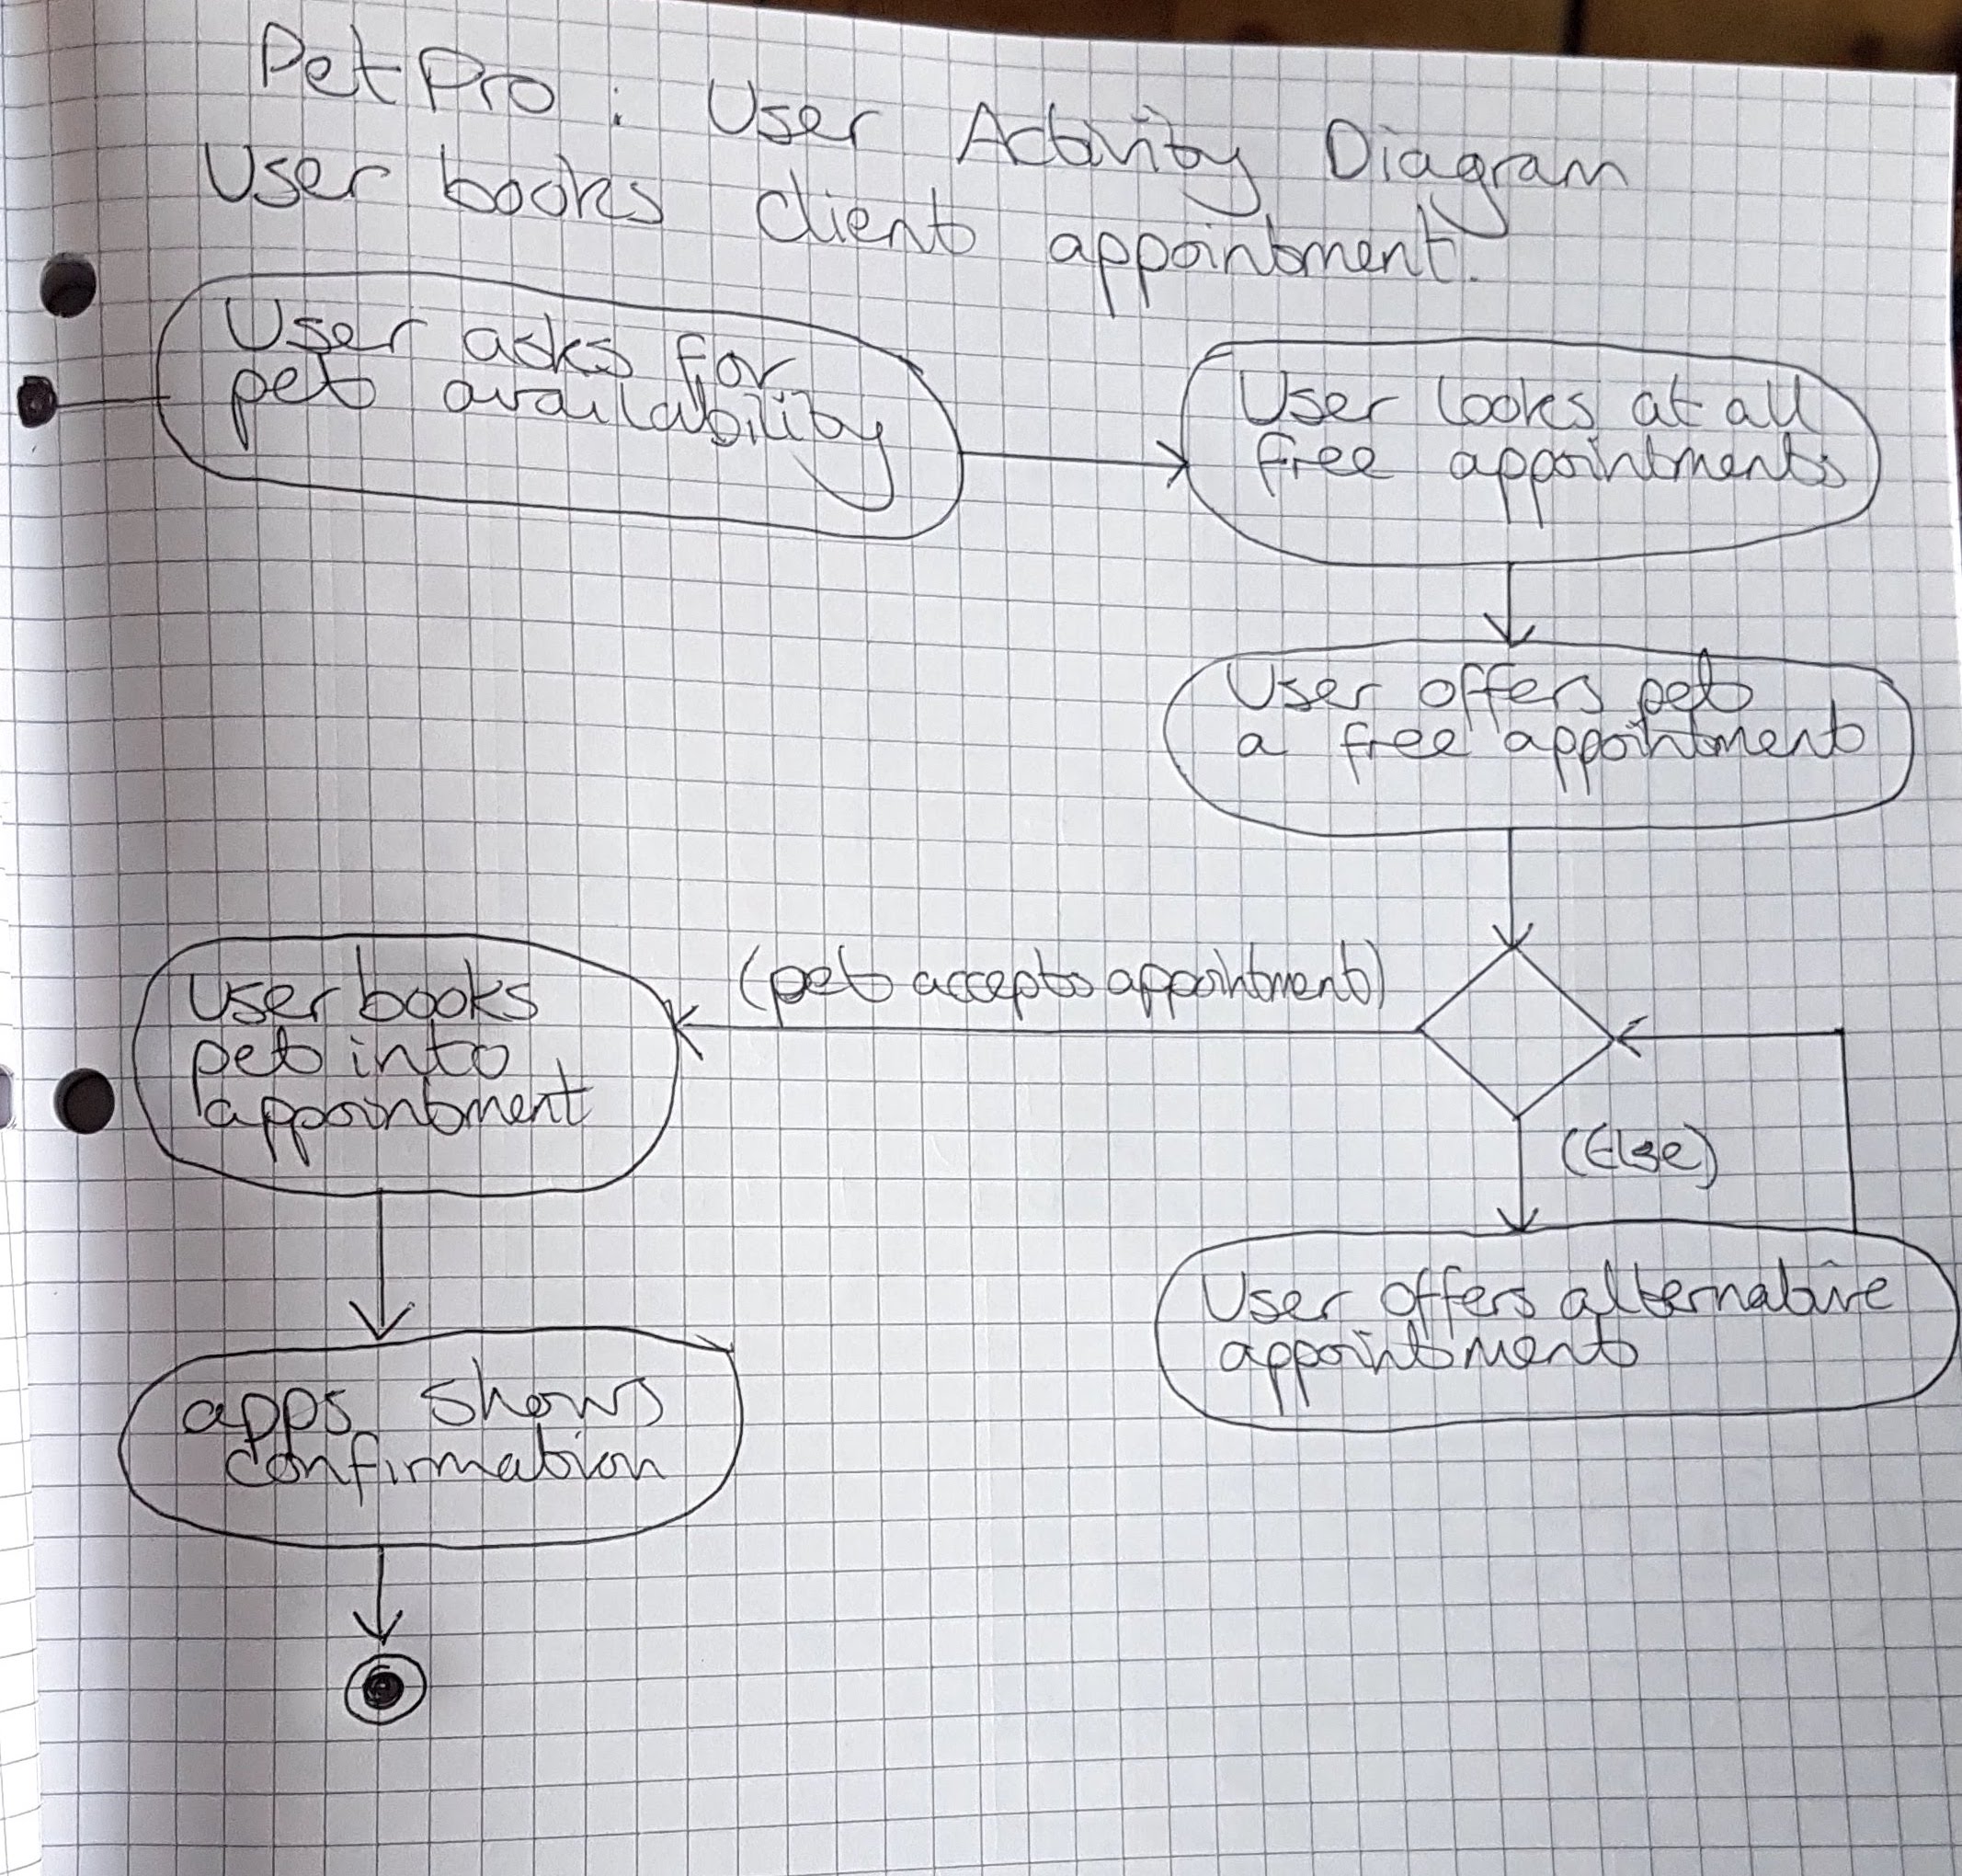 PetPro: User Activity Diagram
User books client appointment.
User asks for
pet availability
User looks at all
free appointments
User offers pet
a free appointment
(pet accepts appointment)
User books
pet into
appointment
(Else)
User offers alternative
appointment
apps shows
confirmation